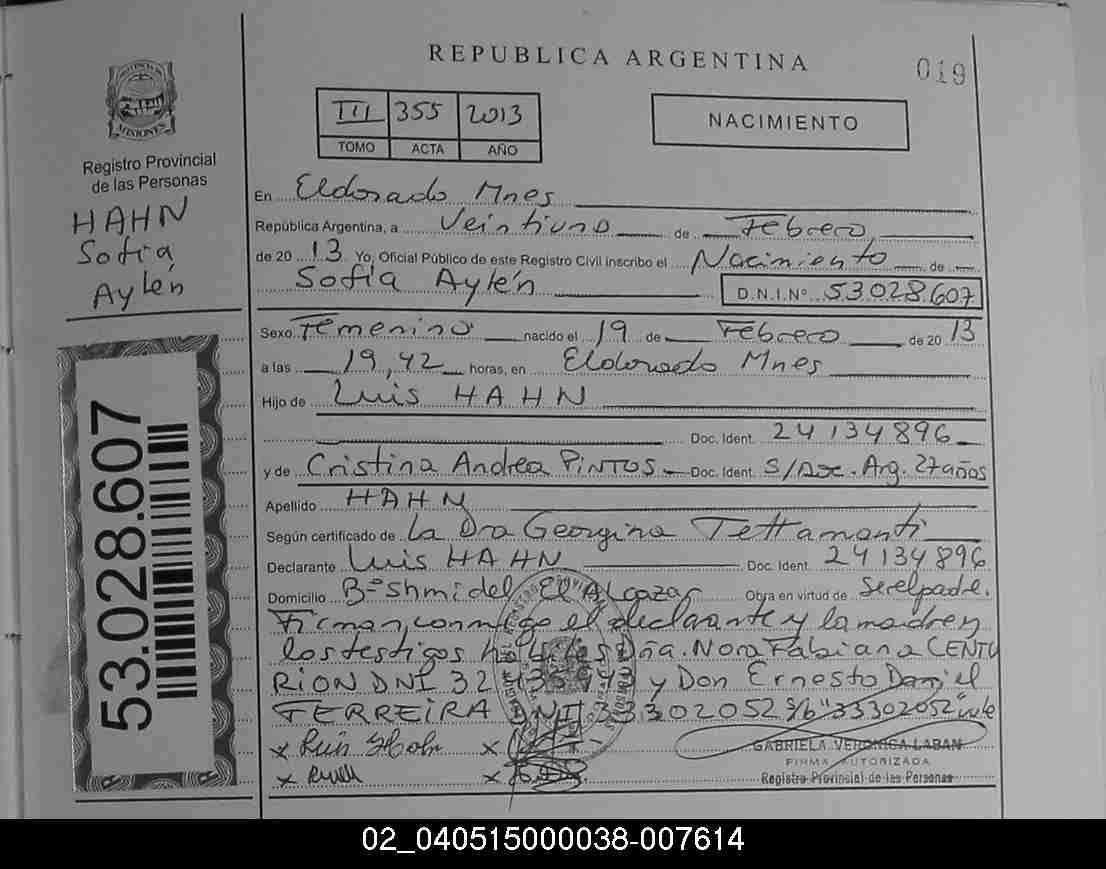 REPUBLICA ARGENTINA
019
PROVINCIA DE
MISIONES
Registro Provincial
de las Personas
HAHN
Sofía
Aylén
53.028.607
III 355 2013
TOMO ACTA AÑO
NACIMIENTO
En Eldorado Mnes
República Argentina, a Veintiuno de Febrero
de 20 13 Yo, Oficial Público de este Registro Civil inscribo el Nacimiento de
Sofía Aylén D.N.I.Nº 53.028.607
Sexo Femenino nacido el 19 de Febrero de 20 13
a las 19,42 horas, en Eldorado Mnes
Hijo de Luis HAHN
Doc. Ident. 24134896
y de Cristina Andrea PINTOS Doc. Ident. S/Doc. Arg. 27 años
Apellido HAHN
Según certificado de La Dra Georgina Tettamanti
Declarante Luis HAHN Doc. Ident. 24134896
Domicilio Bº Shmidel El Alcazar Obra en virtud de Ser el padre.
Firman conmigo el declarante y la madre y
los testigos Dña. Nora Fabiana CENTU
RION DNI y Don Ernesto Daniel
FERREIRA DNI 33302052 S/b "33302052" vale
GABRIELA VERONICA LABAN
FIRMA AUTORIZADA
Registro Provincial de las Personas
02_040515000038-007614